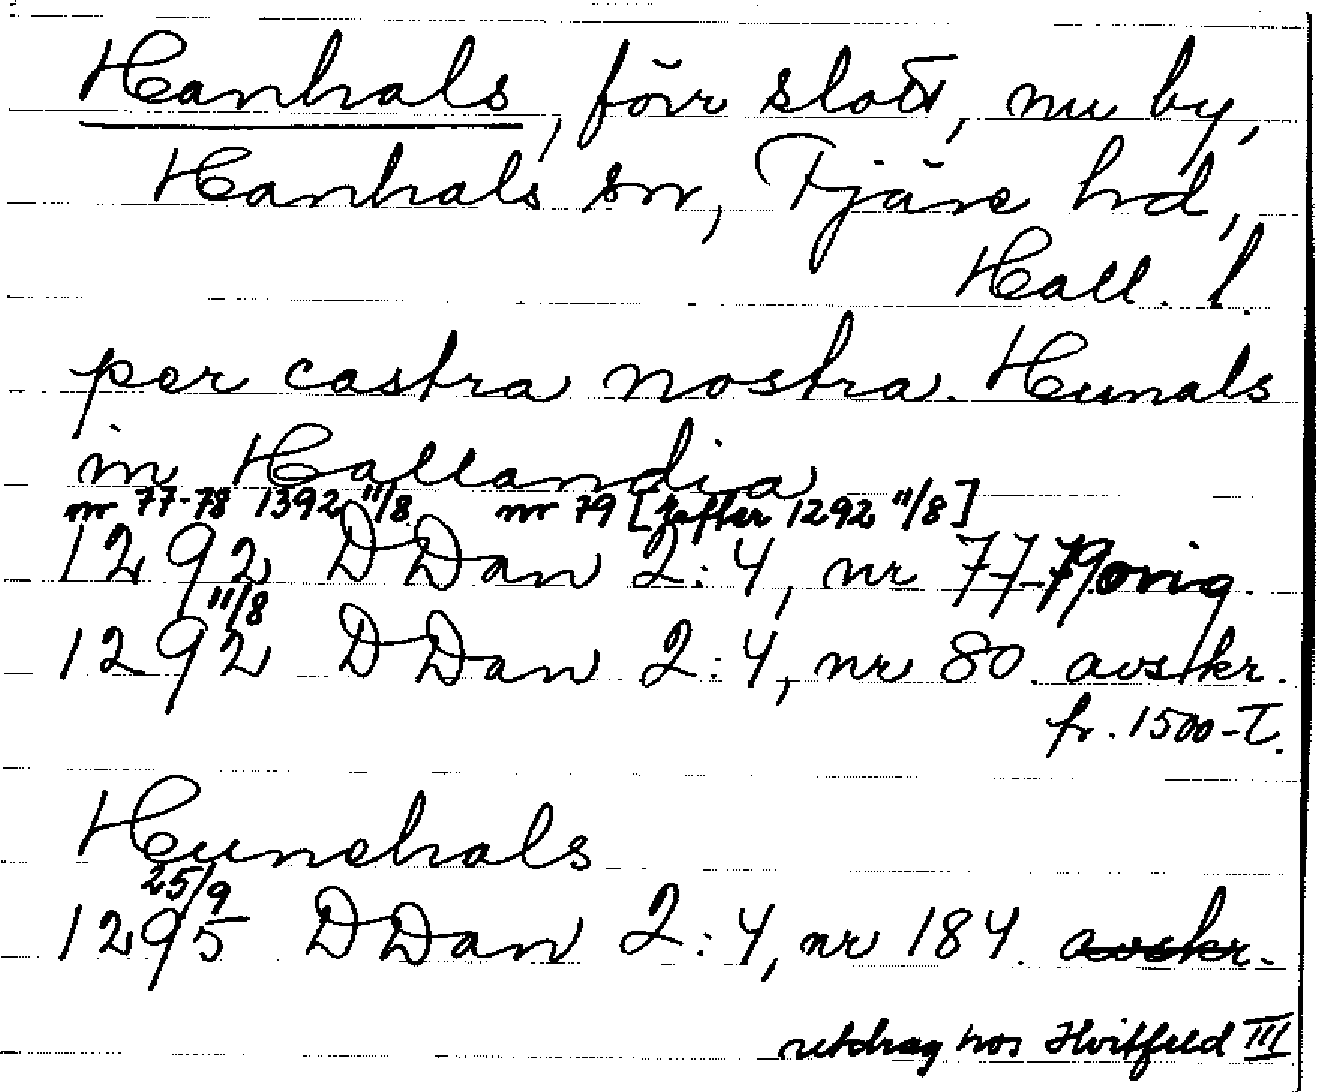 Hanhals, förr slott, nu by,
Hanhals sn, Fjäre hd,
Hall. l.
per castra nostra. Hunals
in Hallandia
nr 77-78 1392 11/8 nr 79 [efter 1292 11/8]
1292 DDan 2:4, nr 77-79 orig.
11/8
1292 DDan 2:4, nr 80. avskr.
fr. 1500-T.
Hunehals
25/9
1295 DDan 2:4, nr 184. avskr.
utdrag hos Hvitfeld III